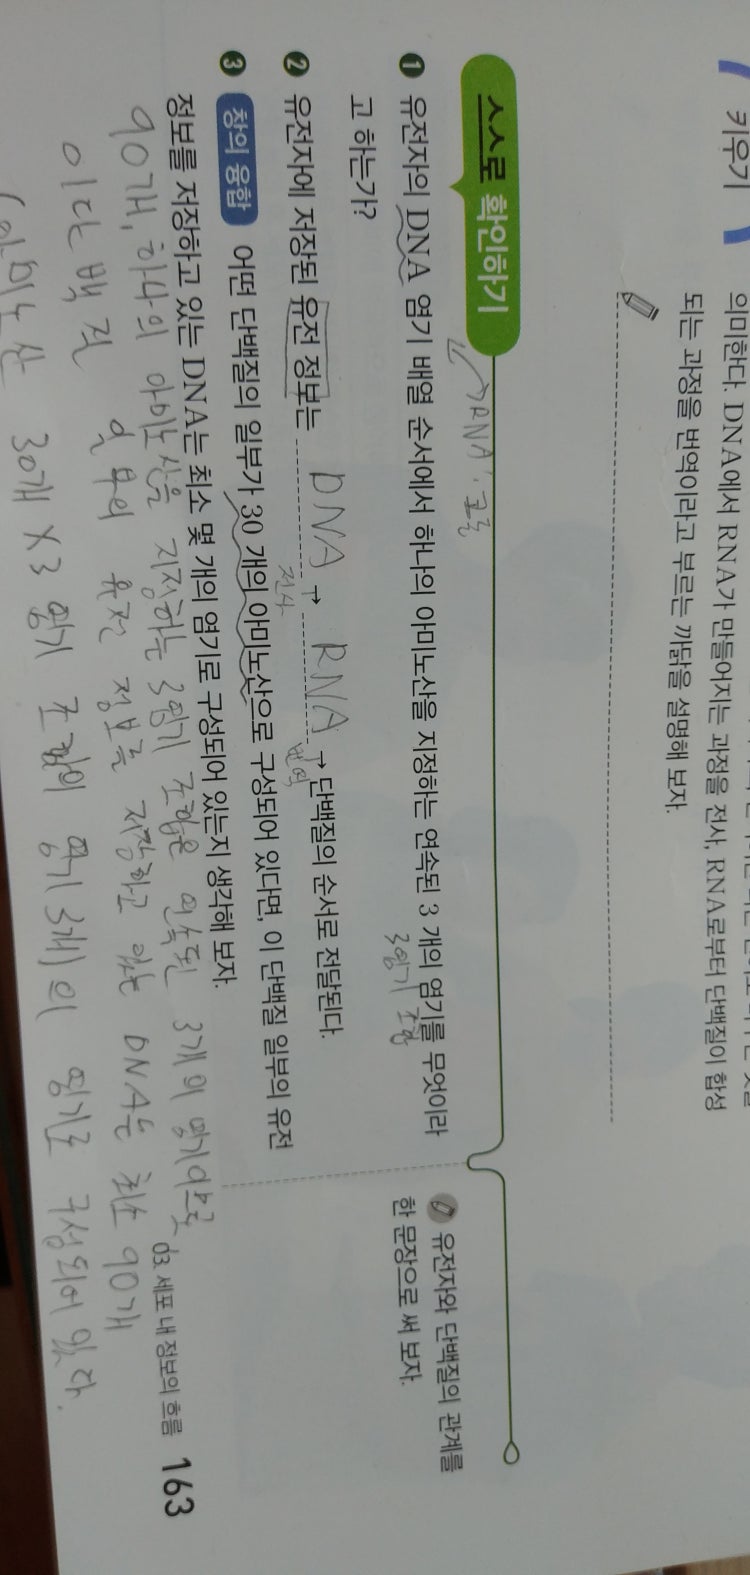 키우기
의미한다. DNA에서 RNA가 만들어지는 과정을 전사, RNA로부터 단백질이 합성
되는 과정을 번역이라고 부르는 까닭을 설명해 보자.
스스로 확인하기
RNA: 코돈
❶ 유전자의 DNA 염기 배열 순서에서 하나의 아미노산을 지정하는 연속된 3 개의 염기를 무엇이라
고 하는가?
3염기 조합
❷ 유전자에 저장된 유전 정보는 DNA → RNA → 단백질의 순서로 전달된다.
전사
번역
❸ 창의 융합 어떤 단백질의 일부가 30 개의 아미노산으로 구성되어 있다면, 이 단백질 일부의 유전
정보를 저장하고 있는 DNA는 최소 몇 개의 염기로 구성되어 있는지 생각해 보자.
90개, 하나의 아미노산을 지정하는 3염기 조합은 연속된 3개의 염기이므로
이 단백질 일부의 유전 정보를 저장하고 있는 DNA는 최소 90개
(아미노산 30개 X3 염기 조합의 염기 3개)의 염기로 구성되어 있다.
유전자와 단백질의 관계를
한 문장으로 써 보자.
03. 세포 내 정보의 흐름 163